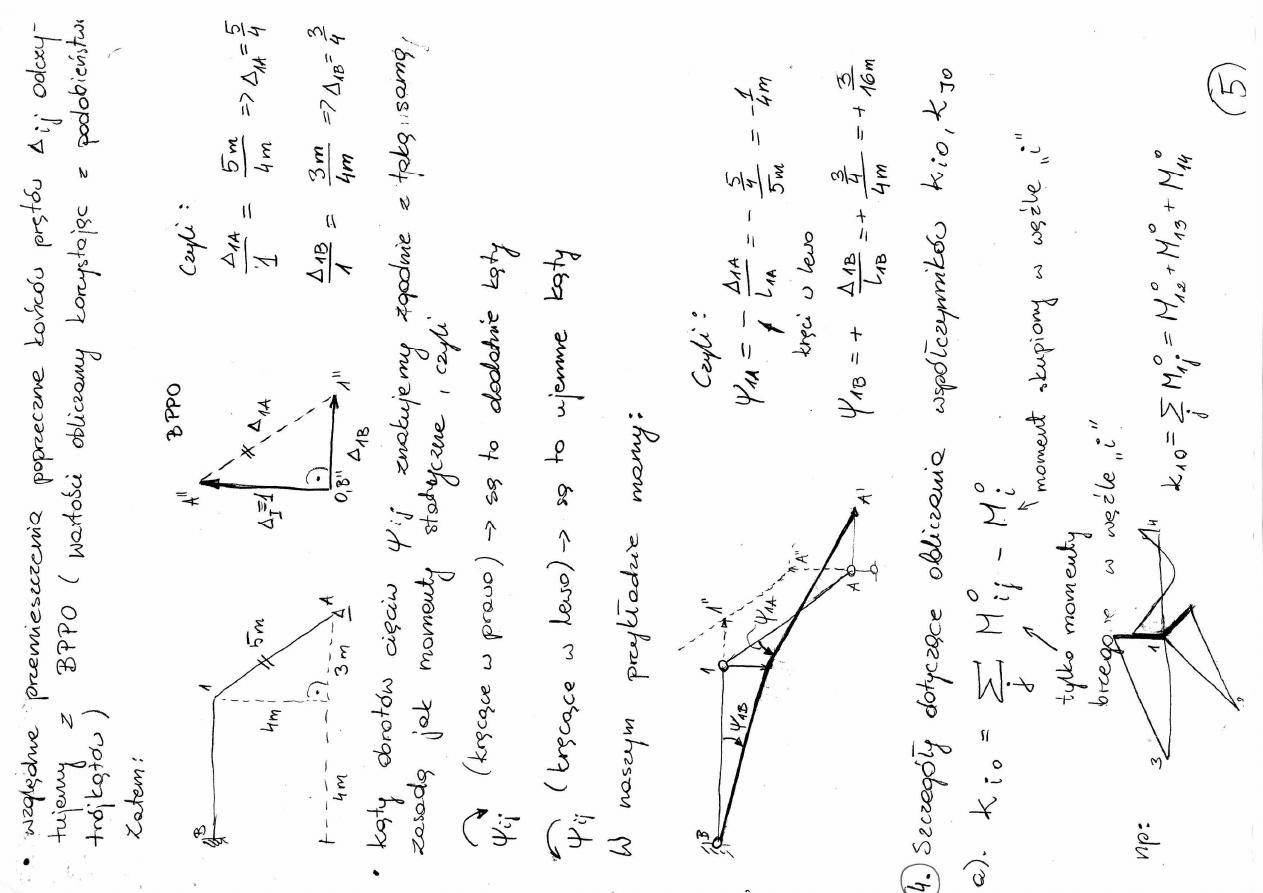 • względne przemieszczenia poprzeczne końców prętów Δij odczy-
tujemy z BPPO (wartości obliczamy korzystając z podobieństwa
trójkątów)
Zatem:
B
1
A
4m
5m
3m
4m
BPPO
A"
ΔI=1
Δ1A
0,B"
Δ1B
1"
Czyli:
Δ1A/1 = 5m/4m => Δ1A = 5/4
Δ1B/1 = 3m/4m => Δ1B = 3/4
• kąty obrotów cięciw ψij znakujemy zgodnie z taką samą
zasadą jak momenty statyczne, czyli
ψij (kręcące w prawo) → są to dodatnie kąty
ψij (kręcące w lewo) → są to ujemne kąty
W naszym przykładzie mamy:
B
ψ1B
1
1"
ψ1A
A"
A
A'
Czyli:
ψ1A = - Δ1A/L1A = - 5/4/5m = - 1/4m
kręci w lewo
ψ1B = + Δ1B/L1B = + 3/4/4m = + 3/16m
4. Szczegóły dotyczące obliczania współczynników kio, kJo
a). kio = Σj Mij° - Mi°
tylko momenty
biegące w węźle „i”
moment skupiony w węźle „i”
np:
3
1
4
2
k10 = Σj M1j° = M12° + M13° + M14°
5